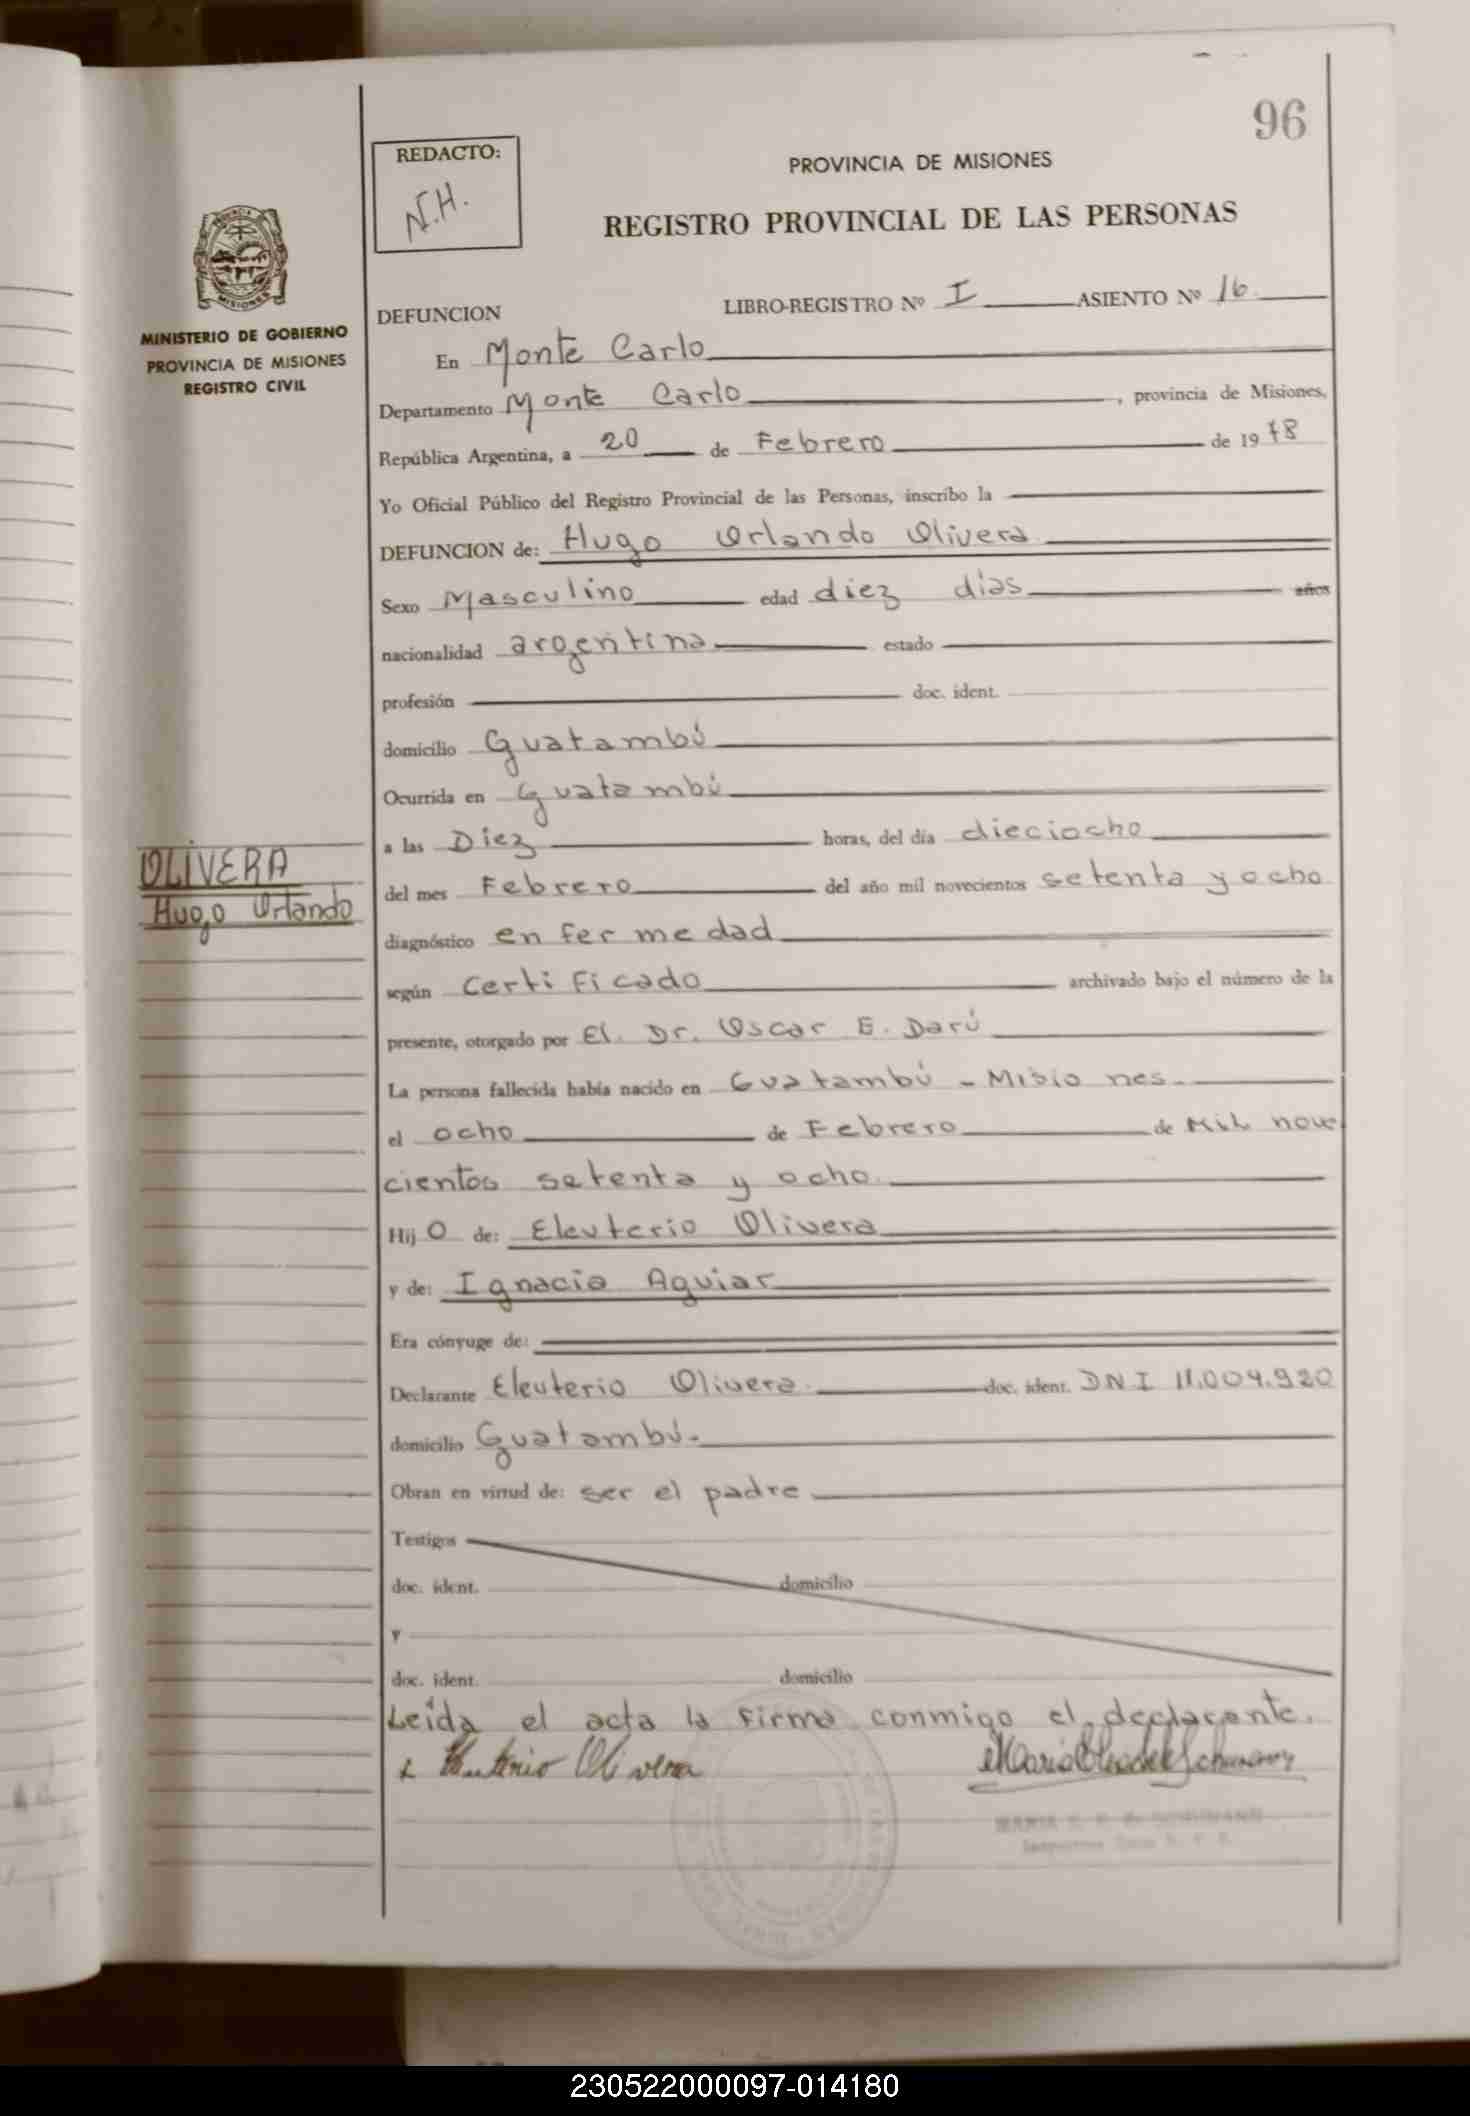 96
REDACTO:
N.H.
PROVINCIA DE MISIONES
REGISTRO PROVINCIAL DE LAS PERSONAS
MINISTERIO DE GOBIERNO
PROVINCIA DE MISIONES
REGISTRO CIVIL
DEFUNCION LIBRO-REGISTRO Nº I ASIENTO Nº 16
En Monte Carlo
Departamento Monte Carlo, provincia de Misiones,
República Argentina, a 20 de Febrero de 1978
Yo Oficial Público del Registro Provincial de las Personas, inscribo la
DEFUNCION de: Hugo Orlando Olivera
Sexo Masculino edad diez días años
nacionalidad argentina estado
profesión doc. ident.
domicilio Guatambú
Ocurrida en Guatambú
a las Diez horas, del día dieciocho
OLIVERA
Hugo Orlando
del mes Febrero del año mil novecientos setenta y ocho
diagnóstico enfermedad
según Certificado archivado bajo el número de la
presente, otorgado por El. Dr. Oscar E. Darú
La persona fallecida había nacido en Guatambú - Misiones.
el ocho de Febrero de Mil nove
cientos setenta y ocho.
Hijo de: Eleuterio Olivera
y de: Ignacia Aguiar
Era cónyuge de:
Declarante Eleuterio Olivera. doc. ident. DNI 11.004.920
domicilio Guatambú.
Obran en virtud de: ser el padre
Testigos
doc. ident. domicilio
y
doc. ident. domicilio
Leída el acta la firma conmigo el declarante.
Olivera
230522000097-014180